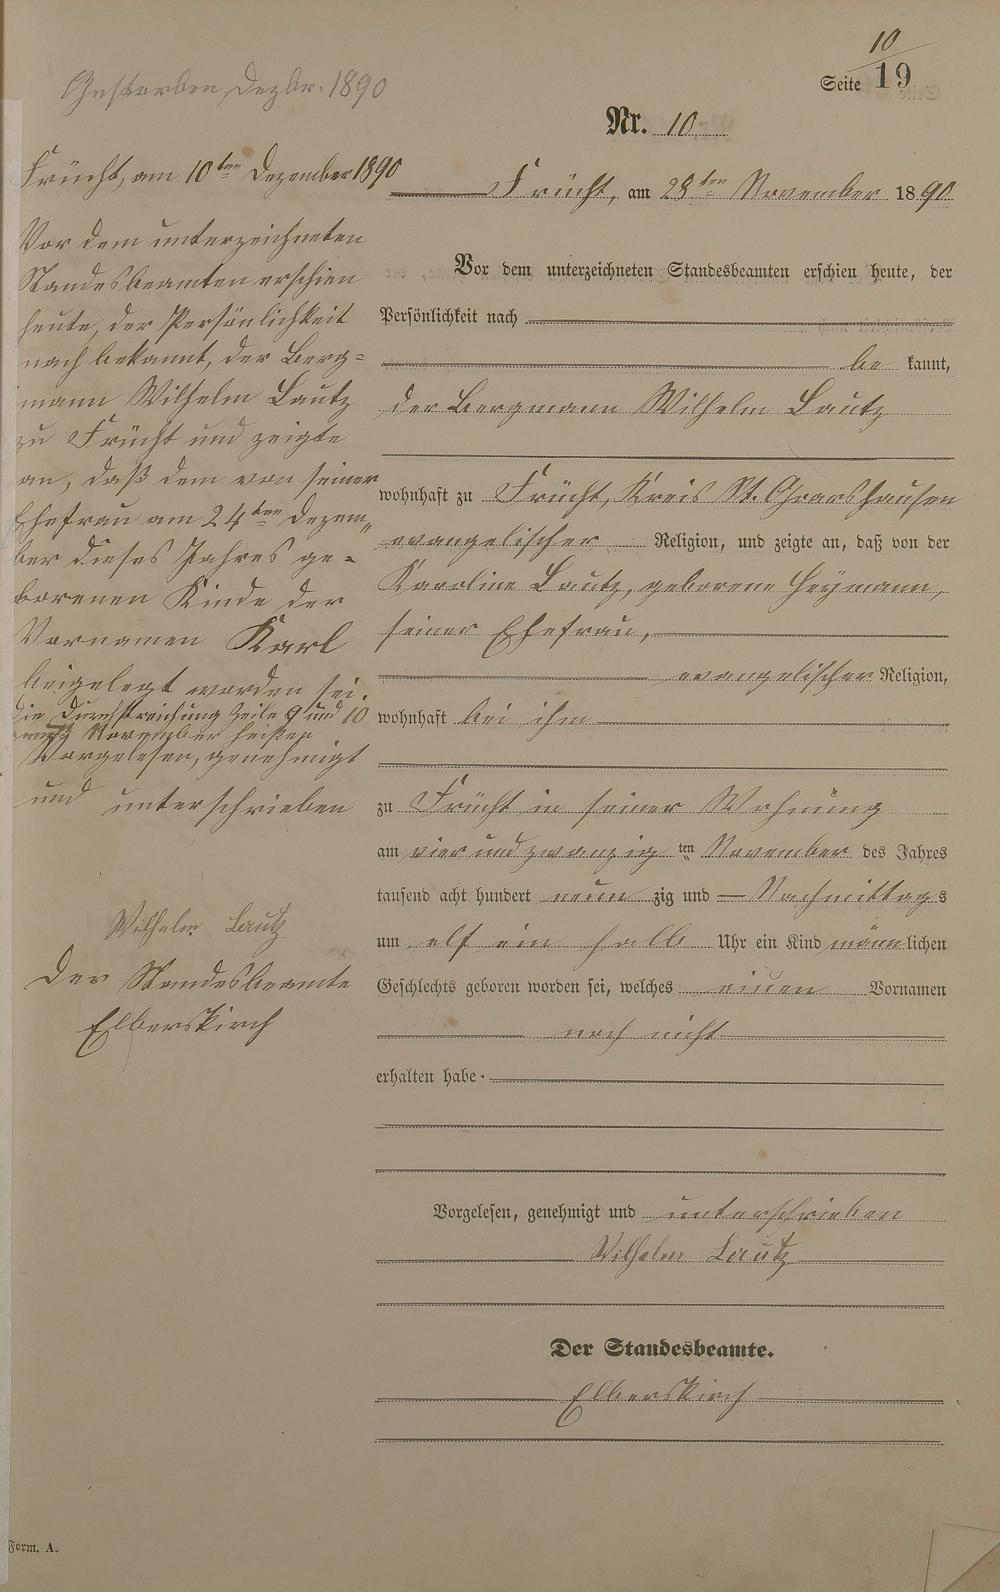 10
Seite 19
Gestorben Dezbr. 1890
Nr. 10
Frücht, am 10ten Dezember 1890
Vor dem unterzeichneten
Standesbeamten erschien
heute, der Persönlichkeit
nach bekannt, der Berg=
mann Wilhelm Lautz
zu Frücht und zeigte
an, daß dem von seiner
Ehefrau am 24ten Dezem„
ber dieses Jahres ge=
borenen Kinde der
Vornamen Karl
beigelegt worden sei.
Die Durchstreichung Zeile 9 und 10
muß November heißen
Vorgelesen, genehmigt
und unterschrieben
Wilhelm Lautz
Der Standesbeamte
Elberskirch
Frücht, am 28ten November 1890
Vor dem unterzeichneten Standesbeamten erschien heute, der
Persönlichkeit nach
be kannt,
der Bergmann Wilhelm Lautz
wohnhaft zu Frücht, Kreis St. Goarshausen
evangelischer Religion, und zeigte an, daß von der
Karoline Lautz, geborene Heymann,
seiner Ehefrau,
evangelischer Religion,
wohnhaft bei ihm
zu Frücht in seiner Wohnung
am vier und zwanzig ten November des Jahres
tausend acht hundert neun zig und — Nachmittags
um elf ein halb Uhr ein Kind männlichen
Geschlechts geboren worden sei, welches einen Vornamen
noch nicht
erhalten habe.
Vorgelesen, genehmigt und unterschrieben
Wilhelm Lautz
Der Standesbeamte.
Elberskirch
Form. A.